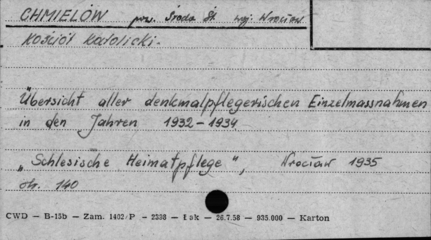 CHMIELÓW pow. Środa Śl. woj. Wrocław
Kościół katolicki.
Übersicht aller denkmalpflegerischen Einzelmassnahmen
in den Jahren 1932-1934
„Schlesische Heimatpflege", Wrocław 1935
str. 140
CWD — B-15b — Zam. 1402/P — 2238 — Łak — 26.7.58 — 935.000 — Karton